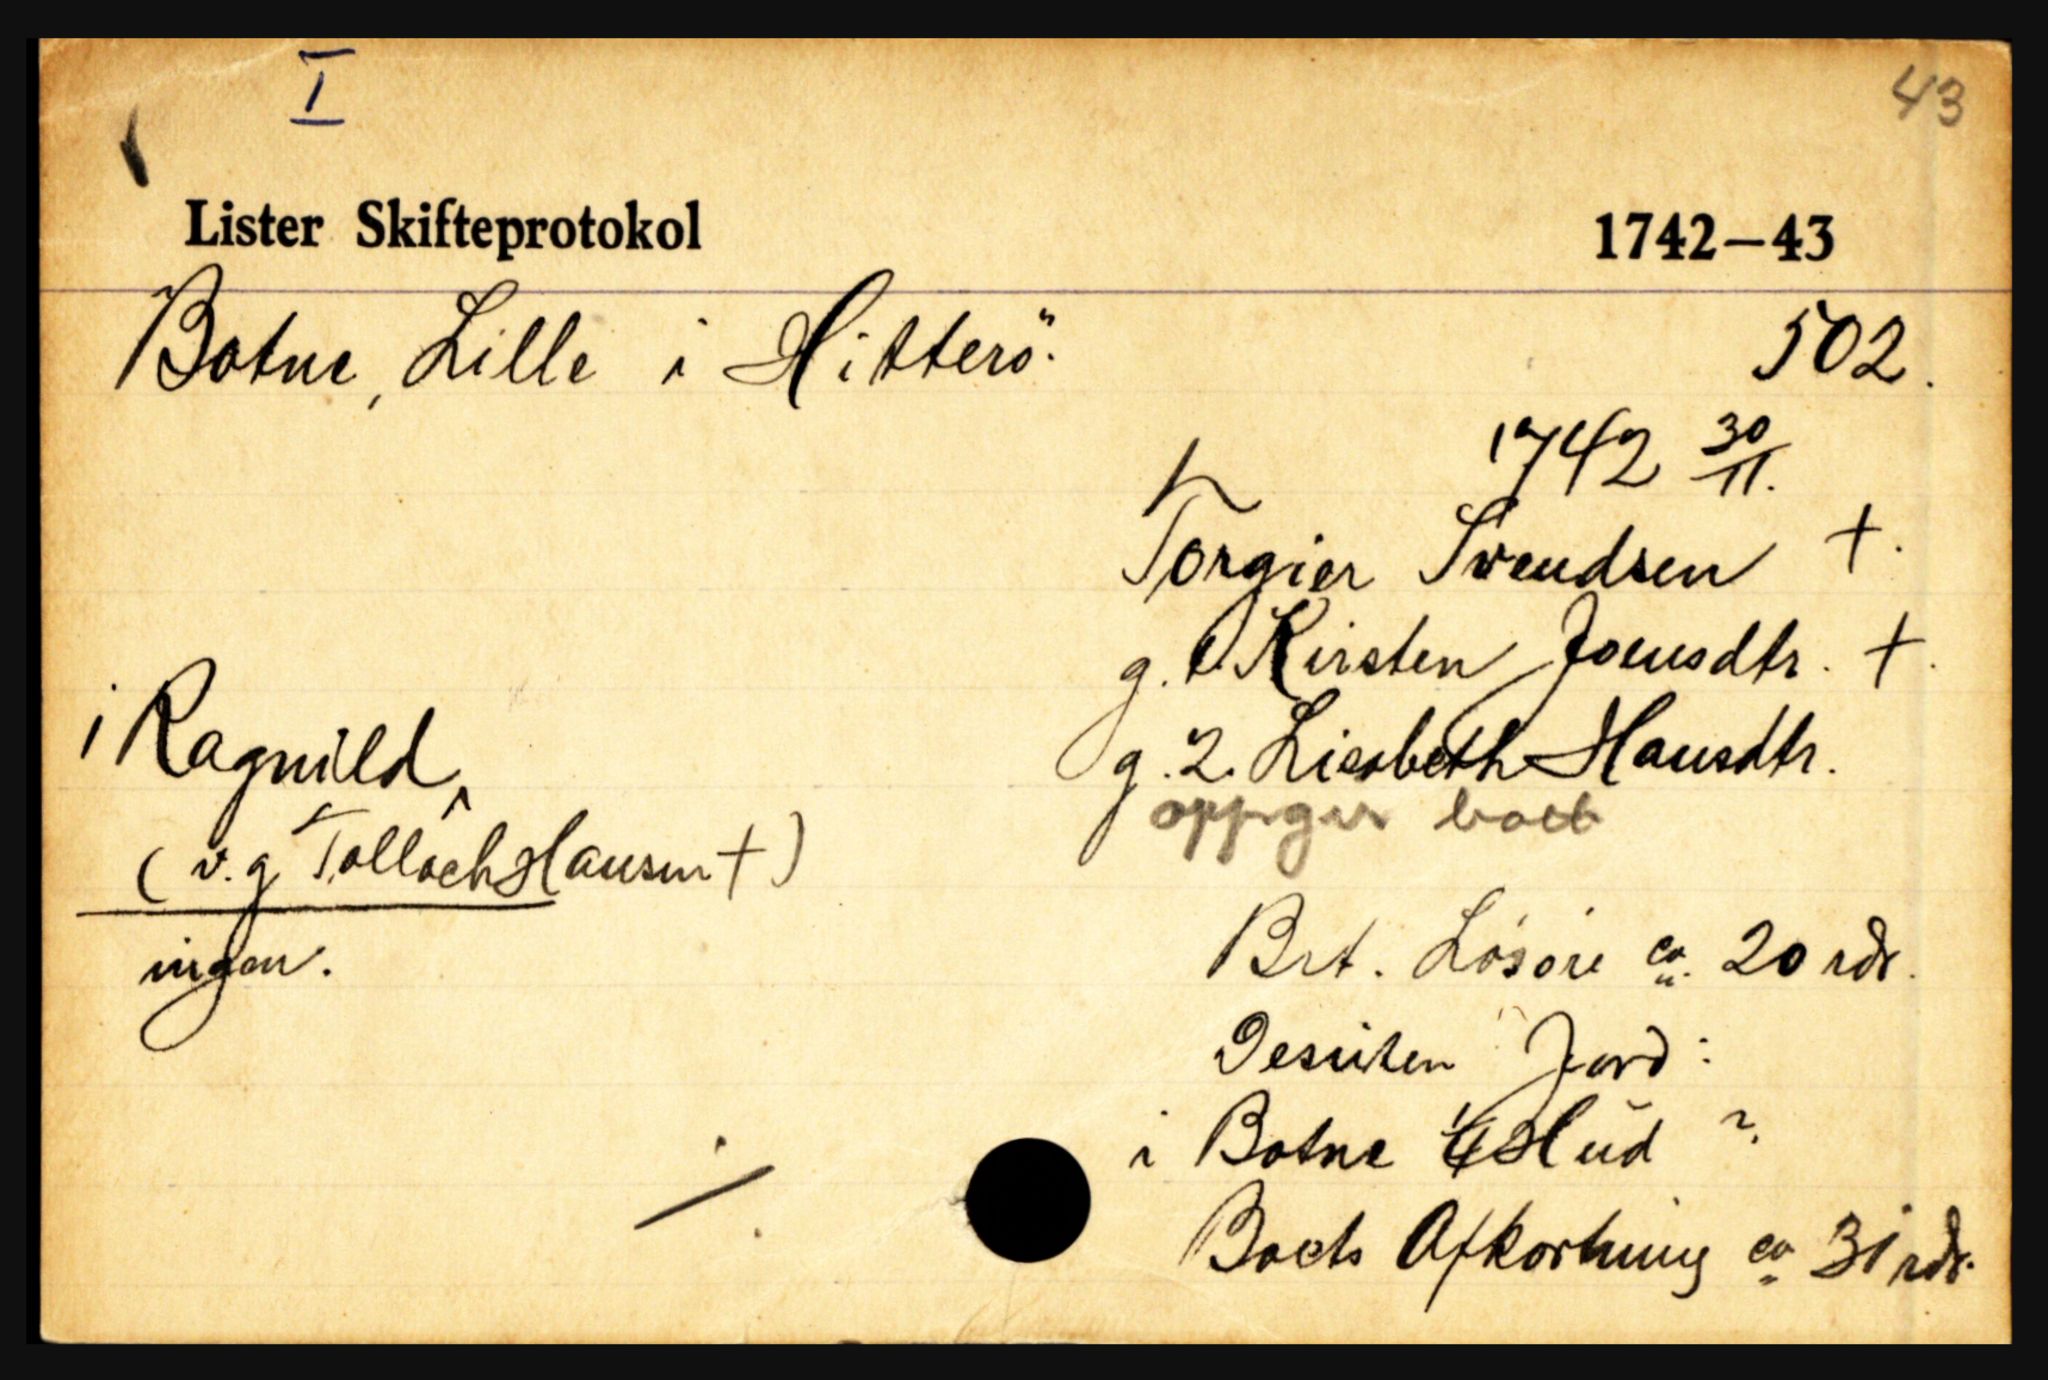 I
43
Lister Skifteprotokol 1742—43
Botne, Lille i Hitterö.
502.
1742 30/11.
Torgier Svendsen +.
g. 1 Kirsten Joensdtr. +.
g. 2. Lisabeth Hansdtr.
oppgir boet
1 Ragnild
(v. g. Tollach Hansen +)
ingen.
Brt. Løsøre ca. 20 rdr.
Desuten Jord:
i Botne 1/4 Hud ?
Boets Afkortning ca 31 rdr.